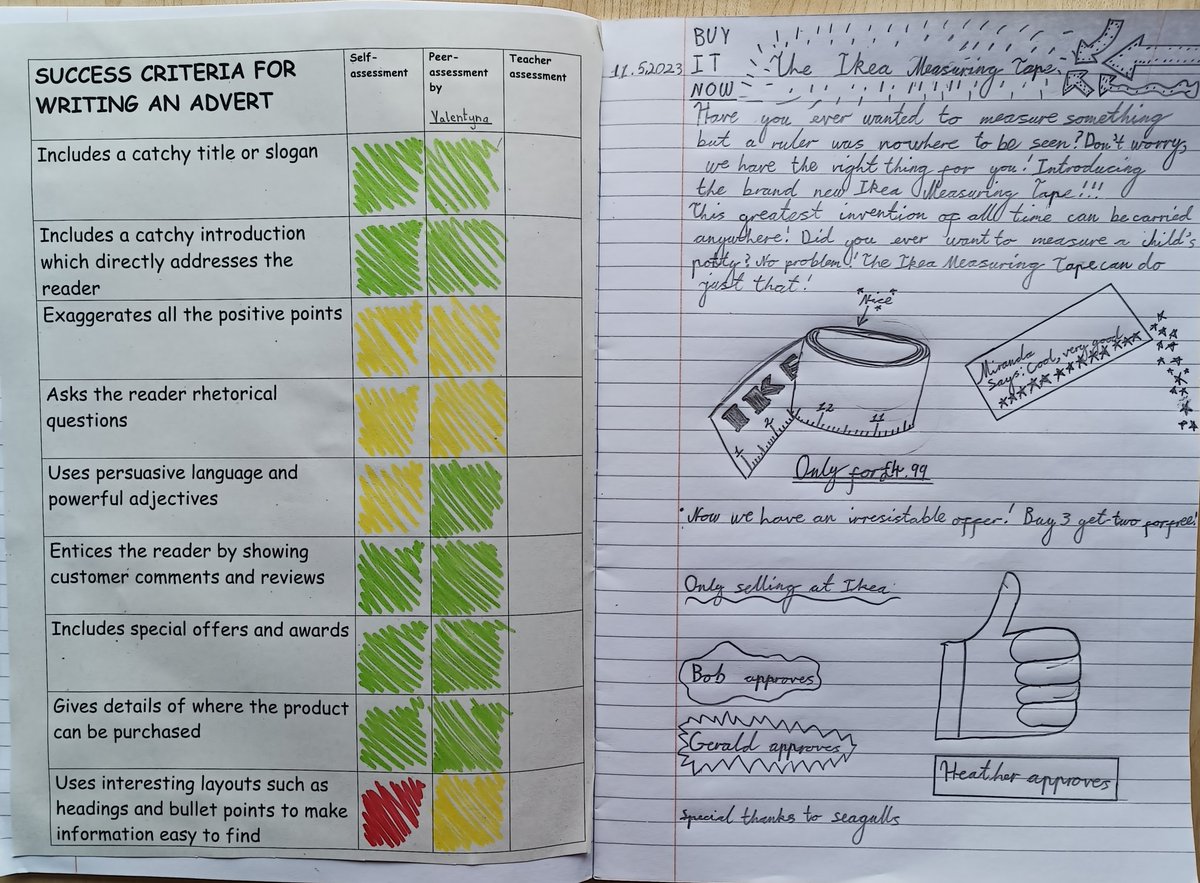 SUCCESS CRITERIA FOR
WRITING AN ADVERT
Self-
assessment
Peer-
assessment
by
Valentyna
Teacher
assessment
Includes a catchy title or slogan
Includes a catchy introduction
which directly addresses the
reader
Exaggerates all the positive points
Asks the reader rhetorical
questions
Uses persuasive language and
powerful adjectives
Entices the reader by showing
customer comments and reviews
Includes special offers and awards
Gives details of where the product
can be purchased
Uses interesting layouts such as
headings and bullet points to make
information easy to find
BUY
IT
NOW
11.5.2023
The Ikea Measuring Tape
Have you ever wanted to measure something
but a ruler was nowhere to be seen? Don't worry,
we have the right thing for you! Introducing
the brand new Ikea Measuring Tape!!!
This greatest invention of all time can be carried
anywhere! Did you ever want to measure a child's
potty? No problem! The Ikea Measuring Tape can do
just that!
"Nice"
IKE
1 2 12 11
Miranda
says: Cool, very good
Only for £4.99
Now we have an irresistable offer! Buy 3 get two for free!
Only selling at Ikea
Bob approves
Gerald approves
Heather approves
Special thanks to seagulls